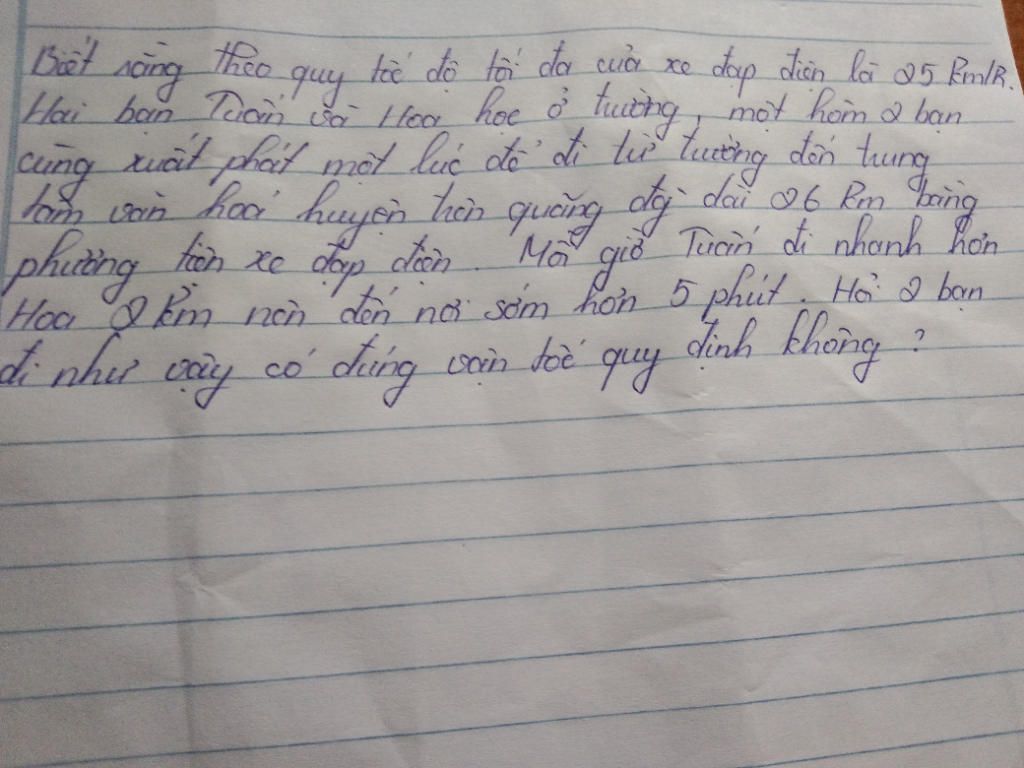 Biết rằng theo quy tốc độ tối đa của xe đạp điện là 25 km/h.
Hai bạn Tuấn và Hoa học ở trường, một hôm 2 bạn
cùng xuất phát một lúc để đi từ trường đến trung
tâm văn hoá huyện trên quãng đg dài 26 km bằng
phương tiện xe đạp điện. Mỗi giờ Tuấn đi nhanh hơn
Hoa 2 km nên đến nơi sớm hơn 5 phút. Hỏi 2 bạn
đi như vậy có đúng vận tốc quy định không?